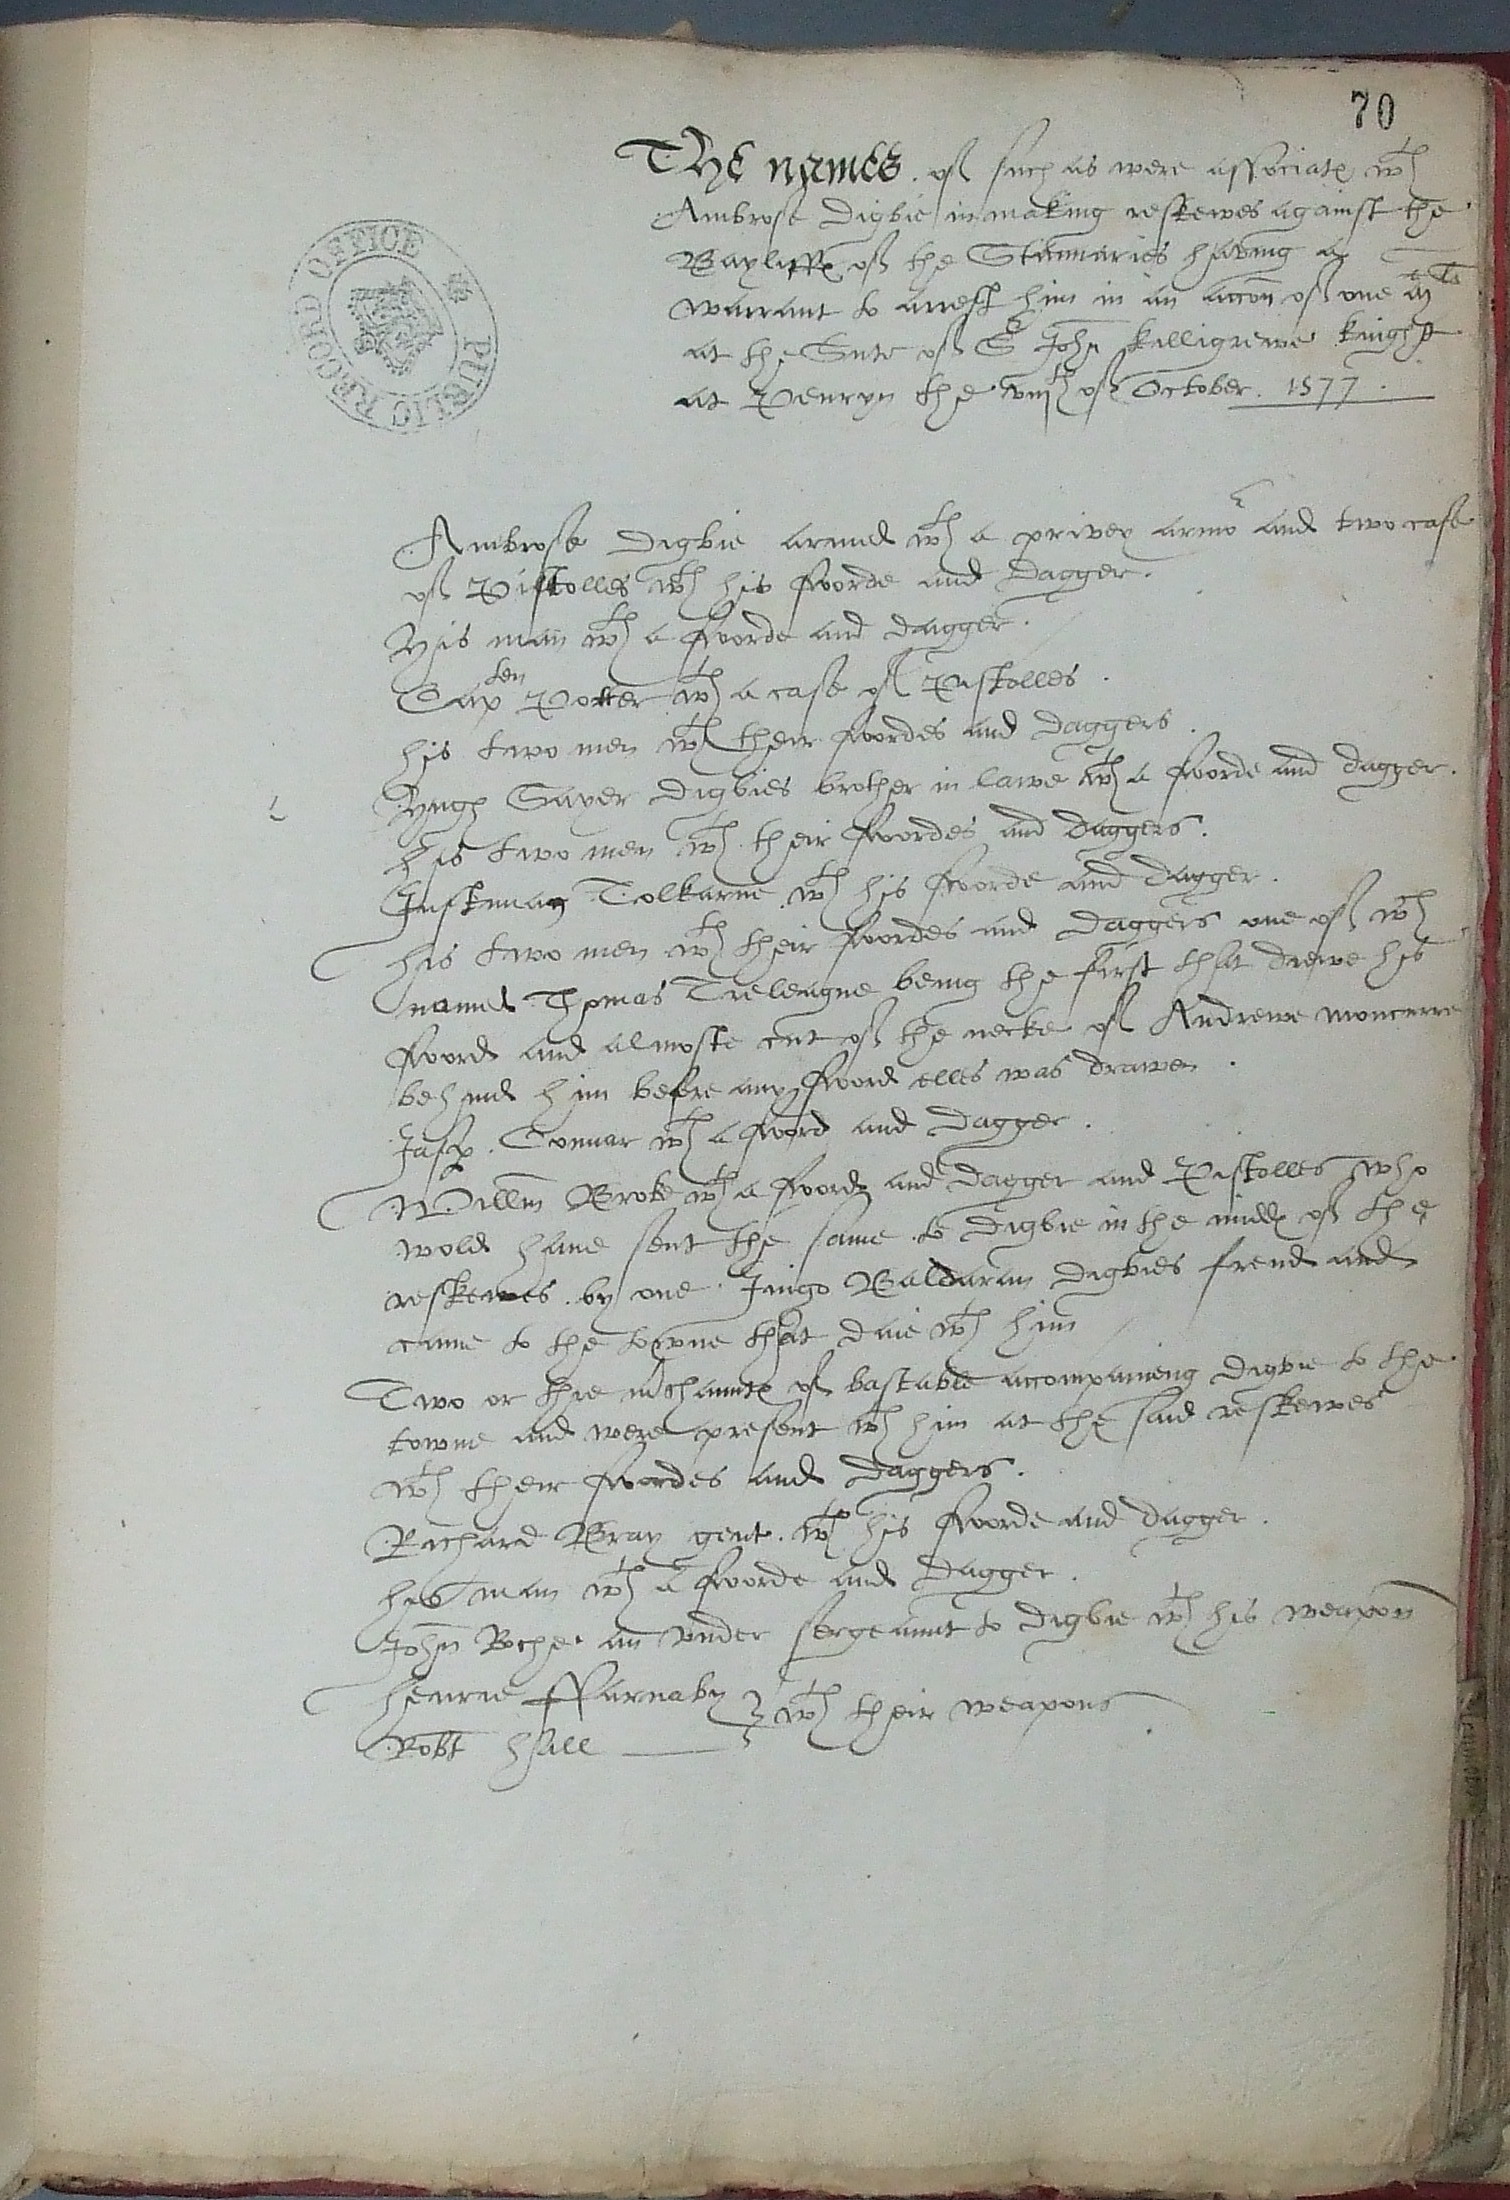 70
PUBLIC RECORD OFFICE
The names of such as were associate wth
Ambrose Digbie in making reskewes against the
Bayliffe of the Stannaries having a
warrant to arrest him in an accon of one
at the Sute of Sr John Killigrewe knight
at Penryn the viijth of October. 1577.
Ambrose Digbie armed wth a privey armor and two case
of Pistolles wth his sworde and Dagger.
His man wth a sworde and dagger.
Capten Potter wth a case of Pistolles.
his two men wth their swordes and Daggers.
Hugh Sayer Digbies brother in lawe wth a sworde and dagger.
his two men wth their swordes and daggers.
Tolkarne wth his sworde and dagger.
his two men wth their swordes and Daggers one of wch
named Thomas Treleagne being the first that drewe his
sword and almoste cut of the necke of Andrewe moncurre
behind him before any sword elles was drawen.
Jasp. Connar wth a sword and Dagger.
Willm Broke wth a sword and Dagger and Pistolles who
wold have sent the same to Digbie in the midd of the
reskewes by one Jingo Baldaran Digbies frend and
came to the towne that daie wth him
Two or thre mchaunte of bastable accompanieng Digbie to the
towne and were present wth him at the said reskewes
wth their swordes and Daggers.
Richard Bray gent. wth his sworde and dagger.
his man wth a sworde and Dagger.
John Roche an under sergeaunt to Digbie wth his weapon
Henrie ffarnaby } wth their weapons
Robt Hall